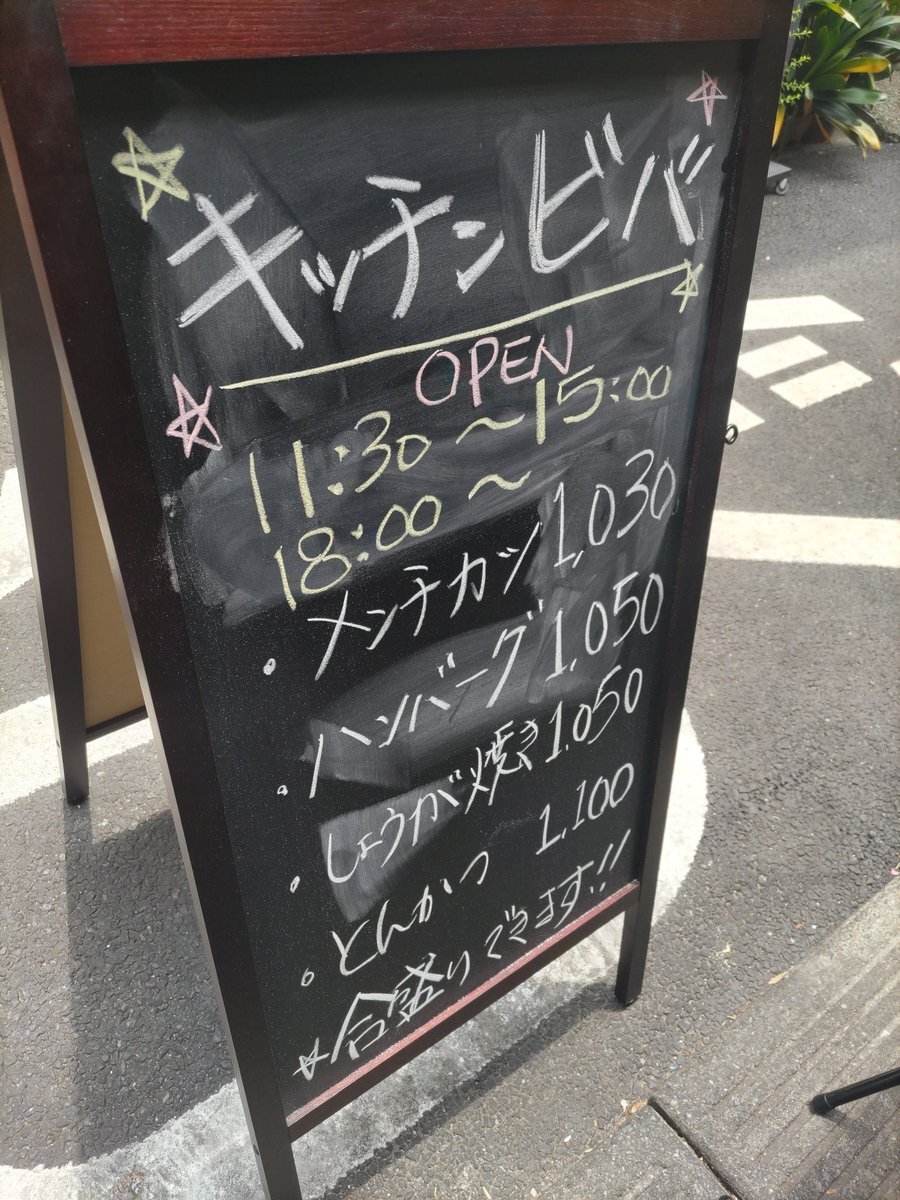 キッチンビバ
OPEN
11:30〜15:00
18:00〜
・メンチカツ 1,030
・ハンバーグ 1,050
・しょうが焼き 1,050
・とんかつ 1,100
☆合盛りできます!!